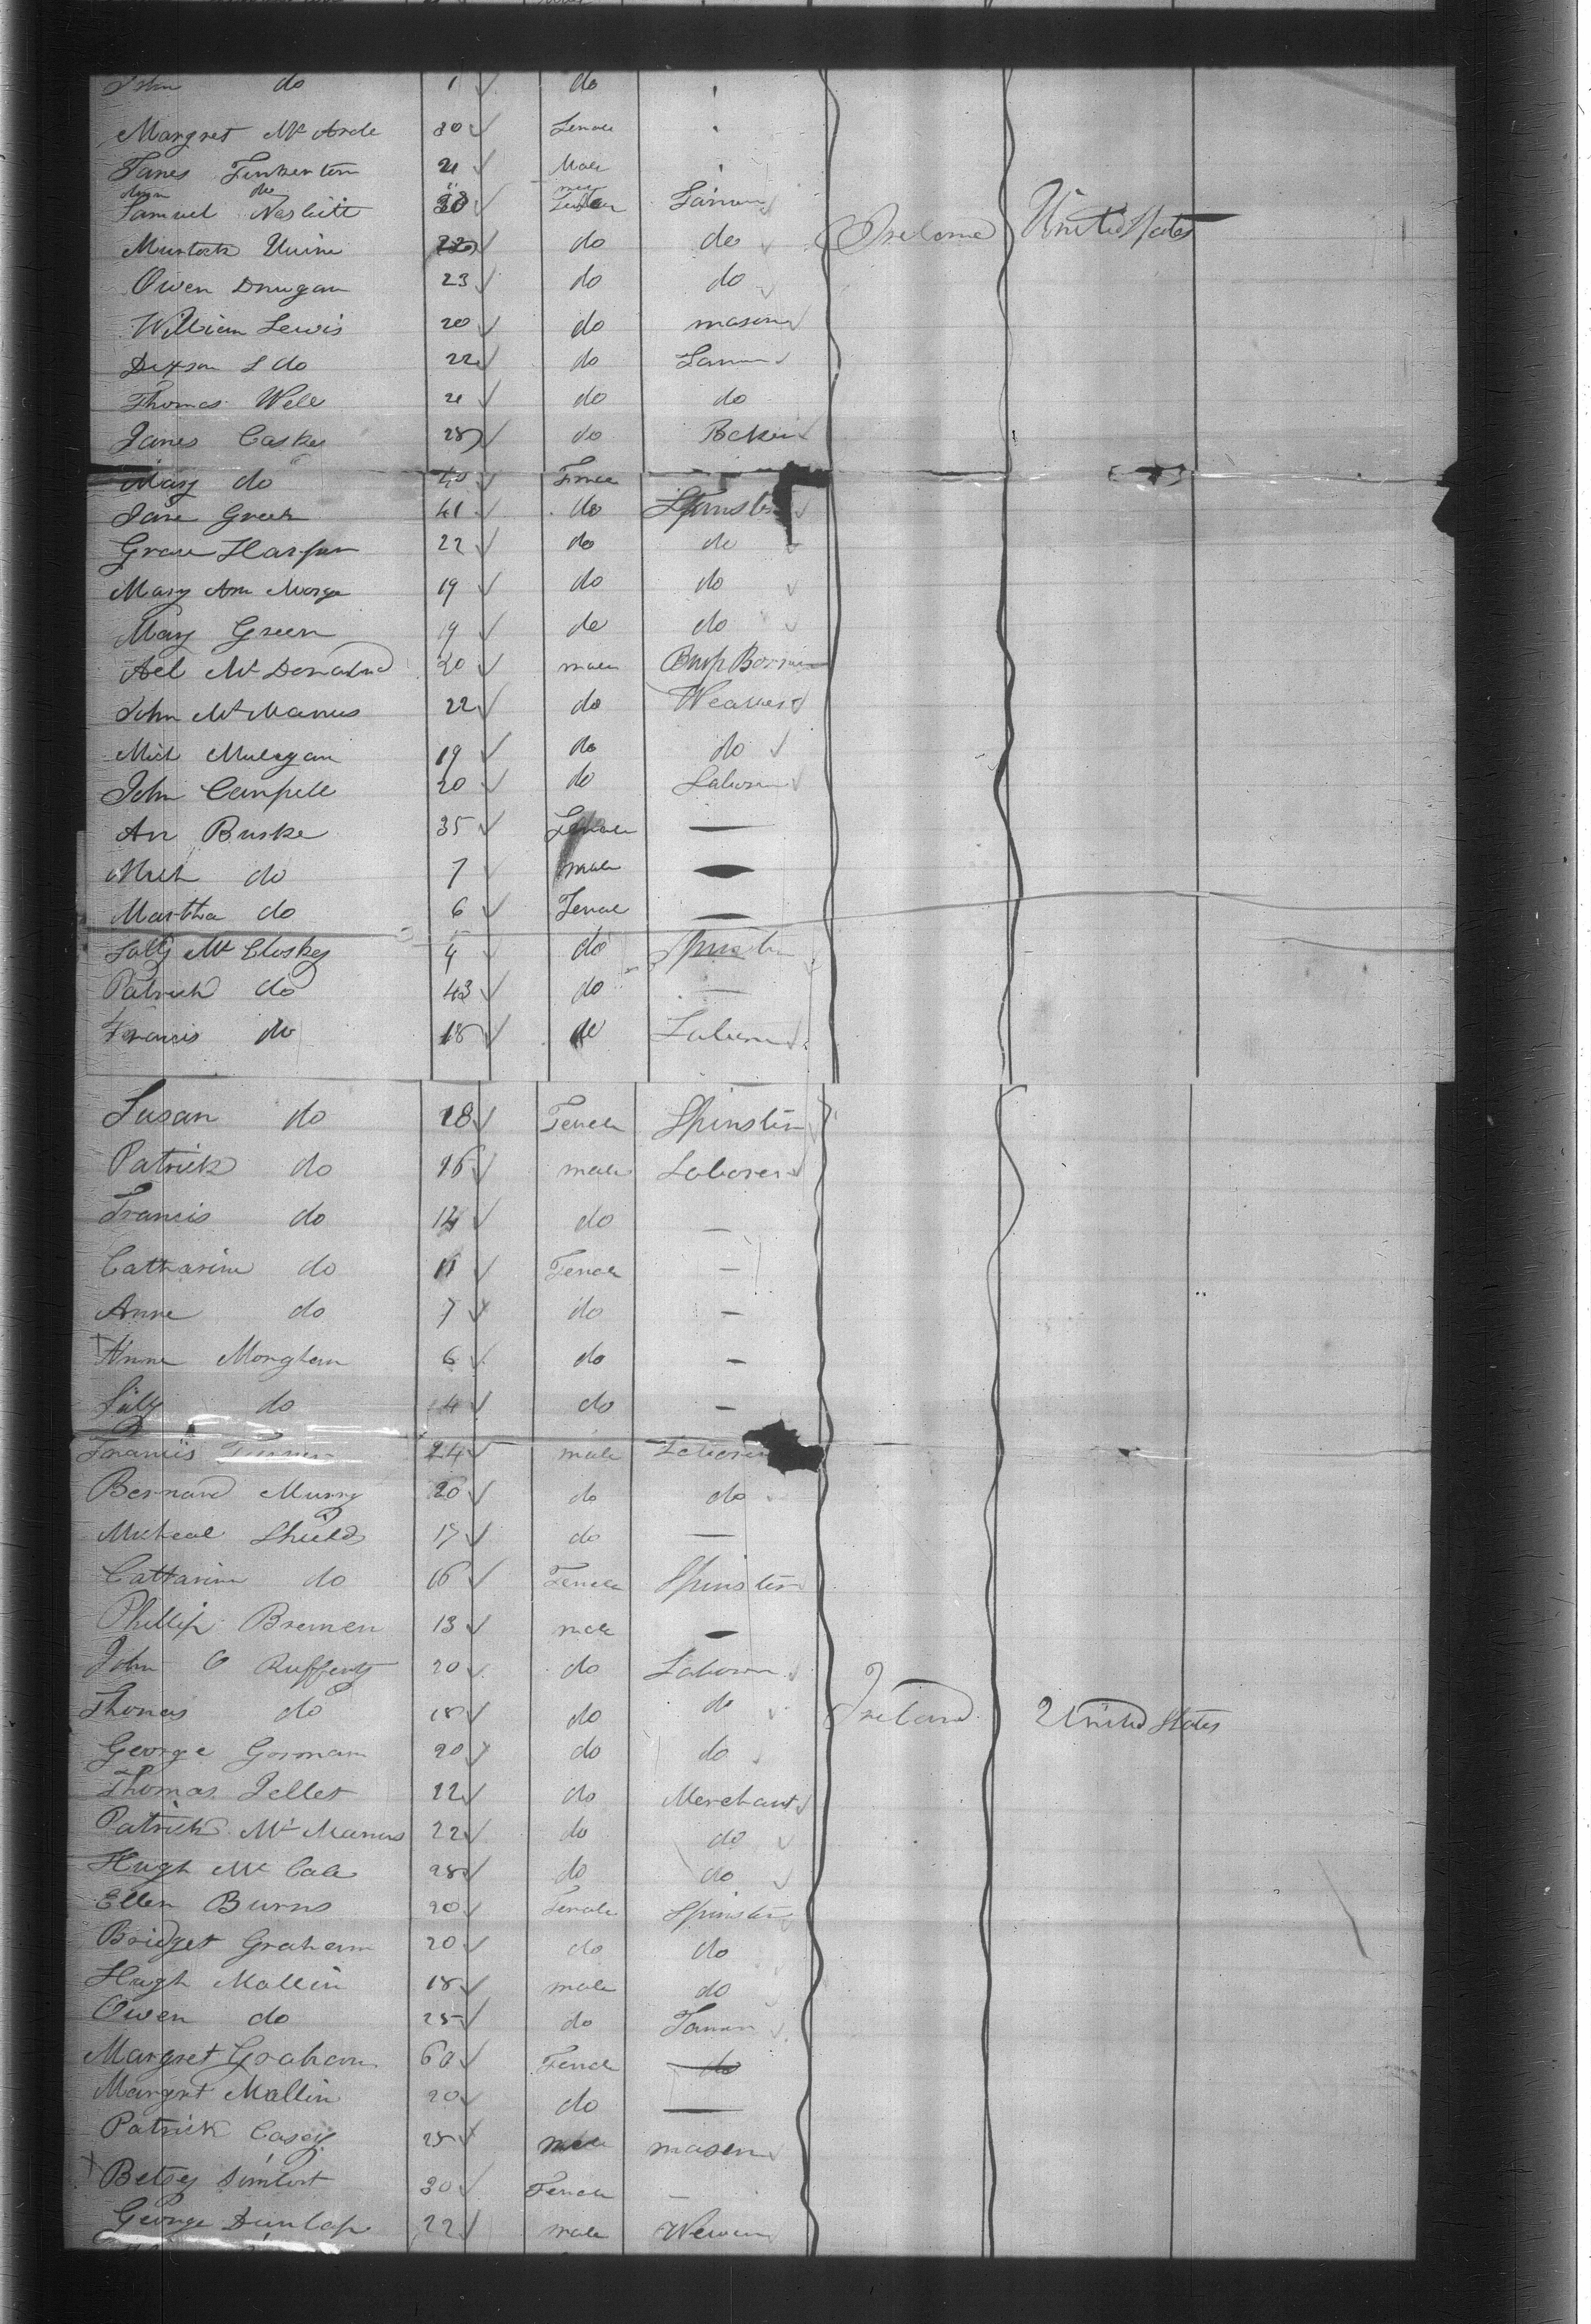 John do 1 do
Margret Mc Arde 30 Female
James Tinkerton 21 Male
do
Samuel Nesbitt 30
Murtock 22 do do Ireland United States
Owen Dnugan 23 do do
William Lewis 20 do mason
Dixson L do 22 do
Thomas Well 21 do do
James Caskey 28 do Baker
Mary do 20
Jane Greek 41 do Spinster
Grace Harper 22 do do
Mary Ann 19 do do
Mary Green 19 do do
McDonald 20 male
John McManus 22 do Weaver
Mich Mulegan 19 do do
John Campell 20 do Laborer
An Burke 35 Female —
Mich do 7 male —
Martha do 6 Female —
Sally McCloskey 4 do Spinster
Patrick do 43 do —
Francis do 18 do Laborer
Susan do 18 Female Spinster
Patrick do 16 male Laborer
Francis do 14 do —
Catharine do 11 Female —
Anne do 7 do —
Anne Monghan 6 do —
do 4 do —
Francis 24 male Laborer
Bernard Murry 20 do do
Micheal Shields 17 do —
Cattarine do 16 Female Spinster
Phillip Bremen 13 male —
John O Rufferty 20 do Laborer
Thomas do 18 do do Ireland United States
George Gorman 20 do do
Thomas Jellet 22 do Merchant
Patrick McManus 22 do do
Hugh McCale 28 do do
Ellen Burns 20 Female Spinster
Bridget Graham 20 do do
Hugh Mallin 18 male do
Owen do 25 do
Margret Graham 60 Female do
Margret Mallin 20 do —
Patrick Casey 25 male mason
Betsey 30 Female —
George Dunlap 22 male